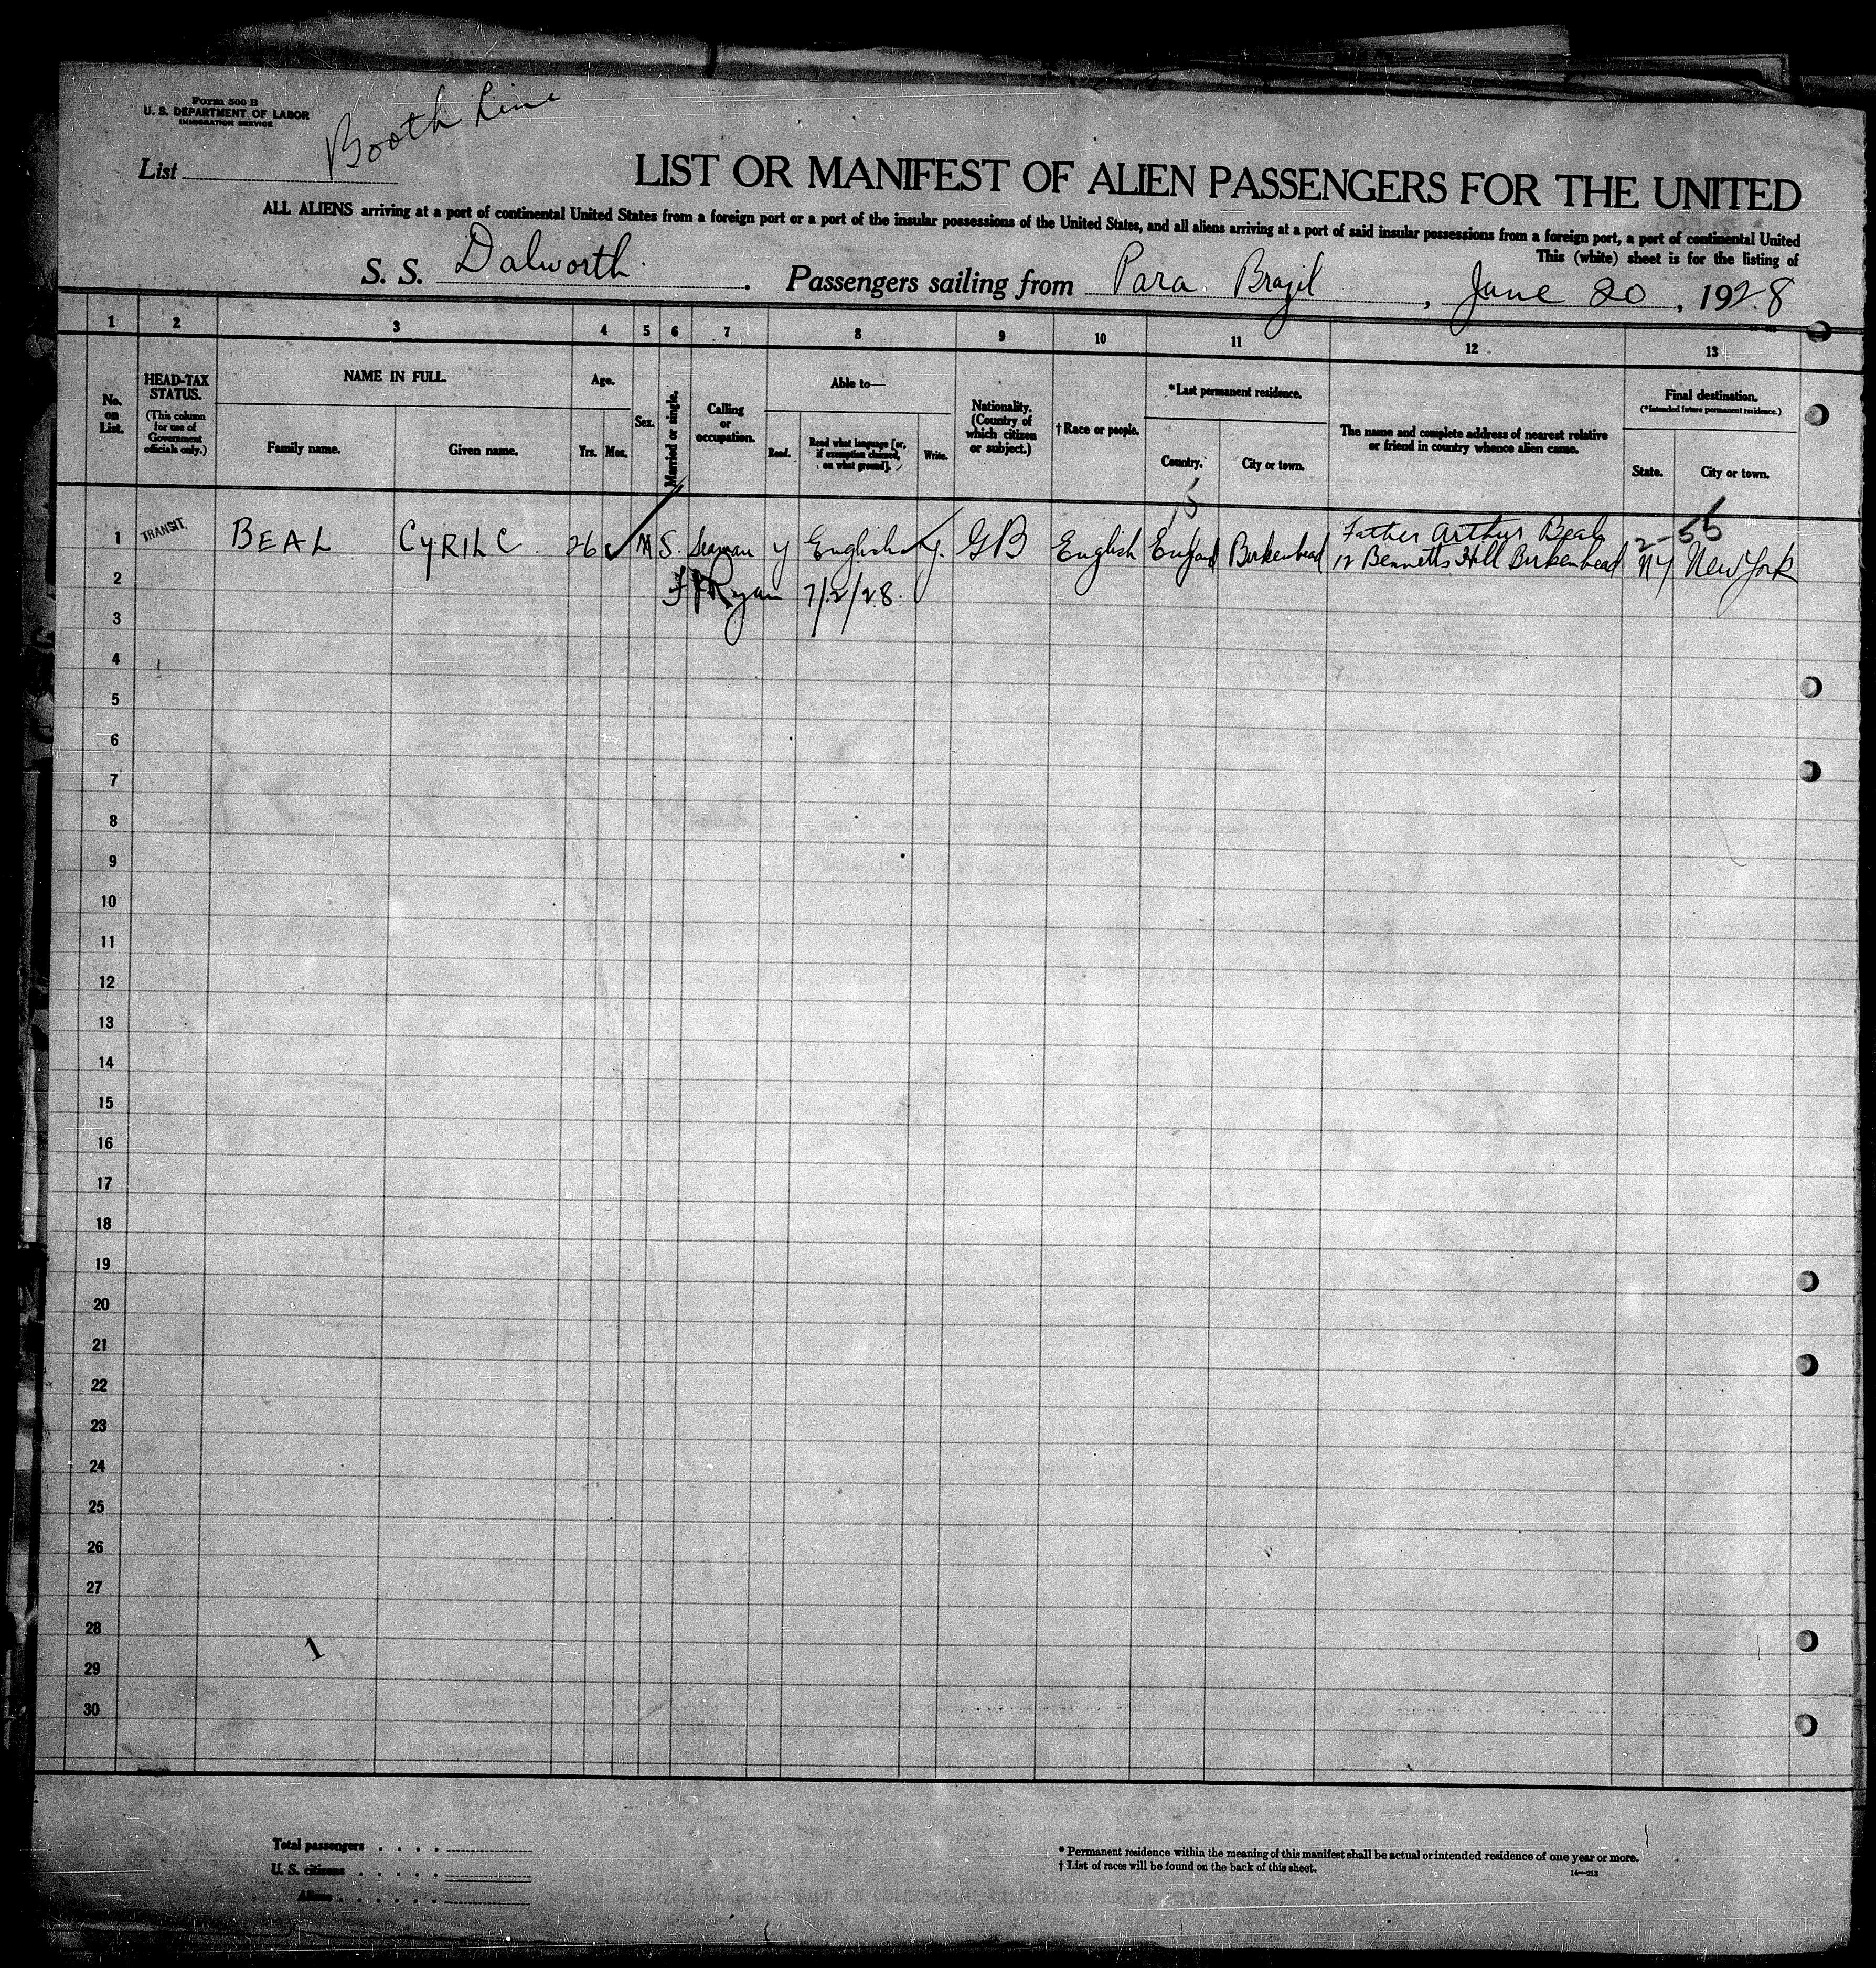 Form 500 B
U. S. DEPARTMENT OF LABOR
IMMIGRATION SERVICE
Booth Line
List
LIST OR MANIFEST OF ALIEN PASSENGERS FOR THE UNITED
ALL ALIENS arriving at a port of continental United States from a foreign port or a port of the insular possessions of the United States, and all aliens arriving at a port of said insular possessions from a foreign port, a port of continental United
This (white) sheet is for the listing of
S. S. Dalworth. Passengers sailing from Para. Brazil, June 20, 1928
1 2 3 4 5 6 7 8 9 10 11 12 13
No. on List.
HEAD-TAX STATUS.
(This column for use of Government officials only.)
NAME IN FULL.
Family name. Given name.
Age.
Yrs. Mos.
Sex.
Married or single.
Calling or occupation.
Able to—
Read. Read what language [or, if exemption claimed, on what ground]. Write.
Nationality. (Country of which citizen or subject.)
† Race or people.
*Last permanent residence.
Country. City or town.
The name and complete address of nearest relative or friend in country whence alien came.
Final destination.
(*Intended future permanent residence.)
State. City or town.
1 TRANSIT. BEAL CYRIL C. 26 M S. Seaman y English y. GB English England Birkenhead Father Arthur Beal NY New York
12 Bennetts Hill Birkenhead
2 Ryan 7/2/28.
3
4
5
6
7
8
9
10
11
12
13
14
15
16
17
18
19
20
21
22
23
24
25
26
27
28
1
29
30
Total passengers
U. S. citizens
Aliens
* Permanent residence within the meaning of this manifest shall be actual or intended residence of one year or more.
† List of races will be found on the back of this sheet.
14—213